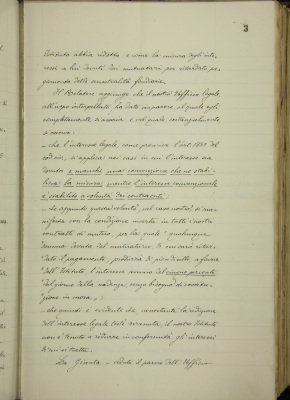 3
Istituto abbia ridotto e come la misura degli inte-
ressi a lui dovuti dai mutuatari per ritardato pa-
gamento delle annualità fondiarie.
Il Relatore aggiunge che il nostro Ufficio legale,
all'uopo interpellato ha dato un parere al quale egli
completamente si associa e col quale
- che l'interesse legale, come promana l'art. 1831 del
cod. civ., si applica nei casi in cui l'interesse sia
dovuto e manchi una convenzione che ne stabi-
lisca la misura; mentre l'interesse convenzionale
è stabilito a volontà dei contraenti;
- che appunto questa volontà, nel caso nostro, si ma-
nifesta con la condizione inserita in tutti i nostri
contratti di mutuo, per la quale "qualunque
somma dovuta dal mutuatario, di cui sia ritar-
dato il pagamento, produrrà di pieno diritto, a favore
dell'Istituto, l'interesse annuo del cinque per cento
dal giorno della scadenza, senza bisogno di costitu-
zione in mora";
- che quindi è evidente che, nonostante la riduzione
dell'interesse legale testè avvenuta, il nostro Istituto
non è tenuto a ridurre in conformità gli interessi
di cui si tratta.
La Giunta - udito il parere dell'Ufficio